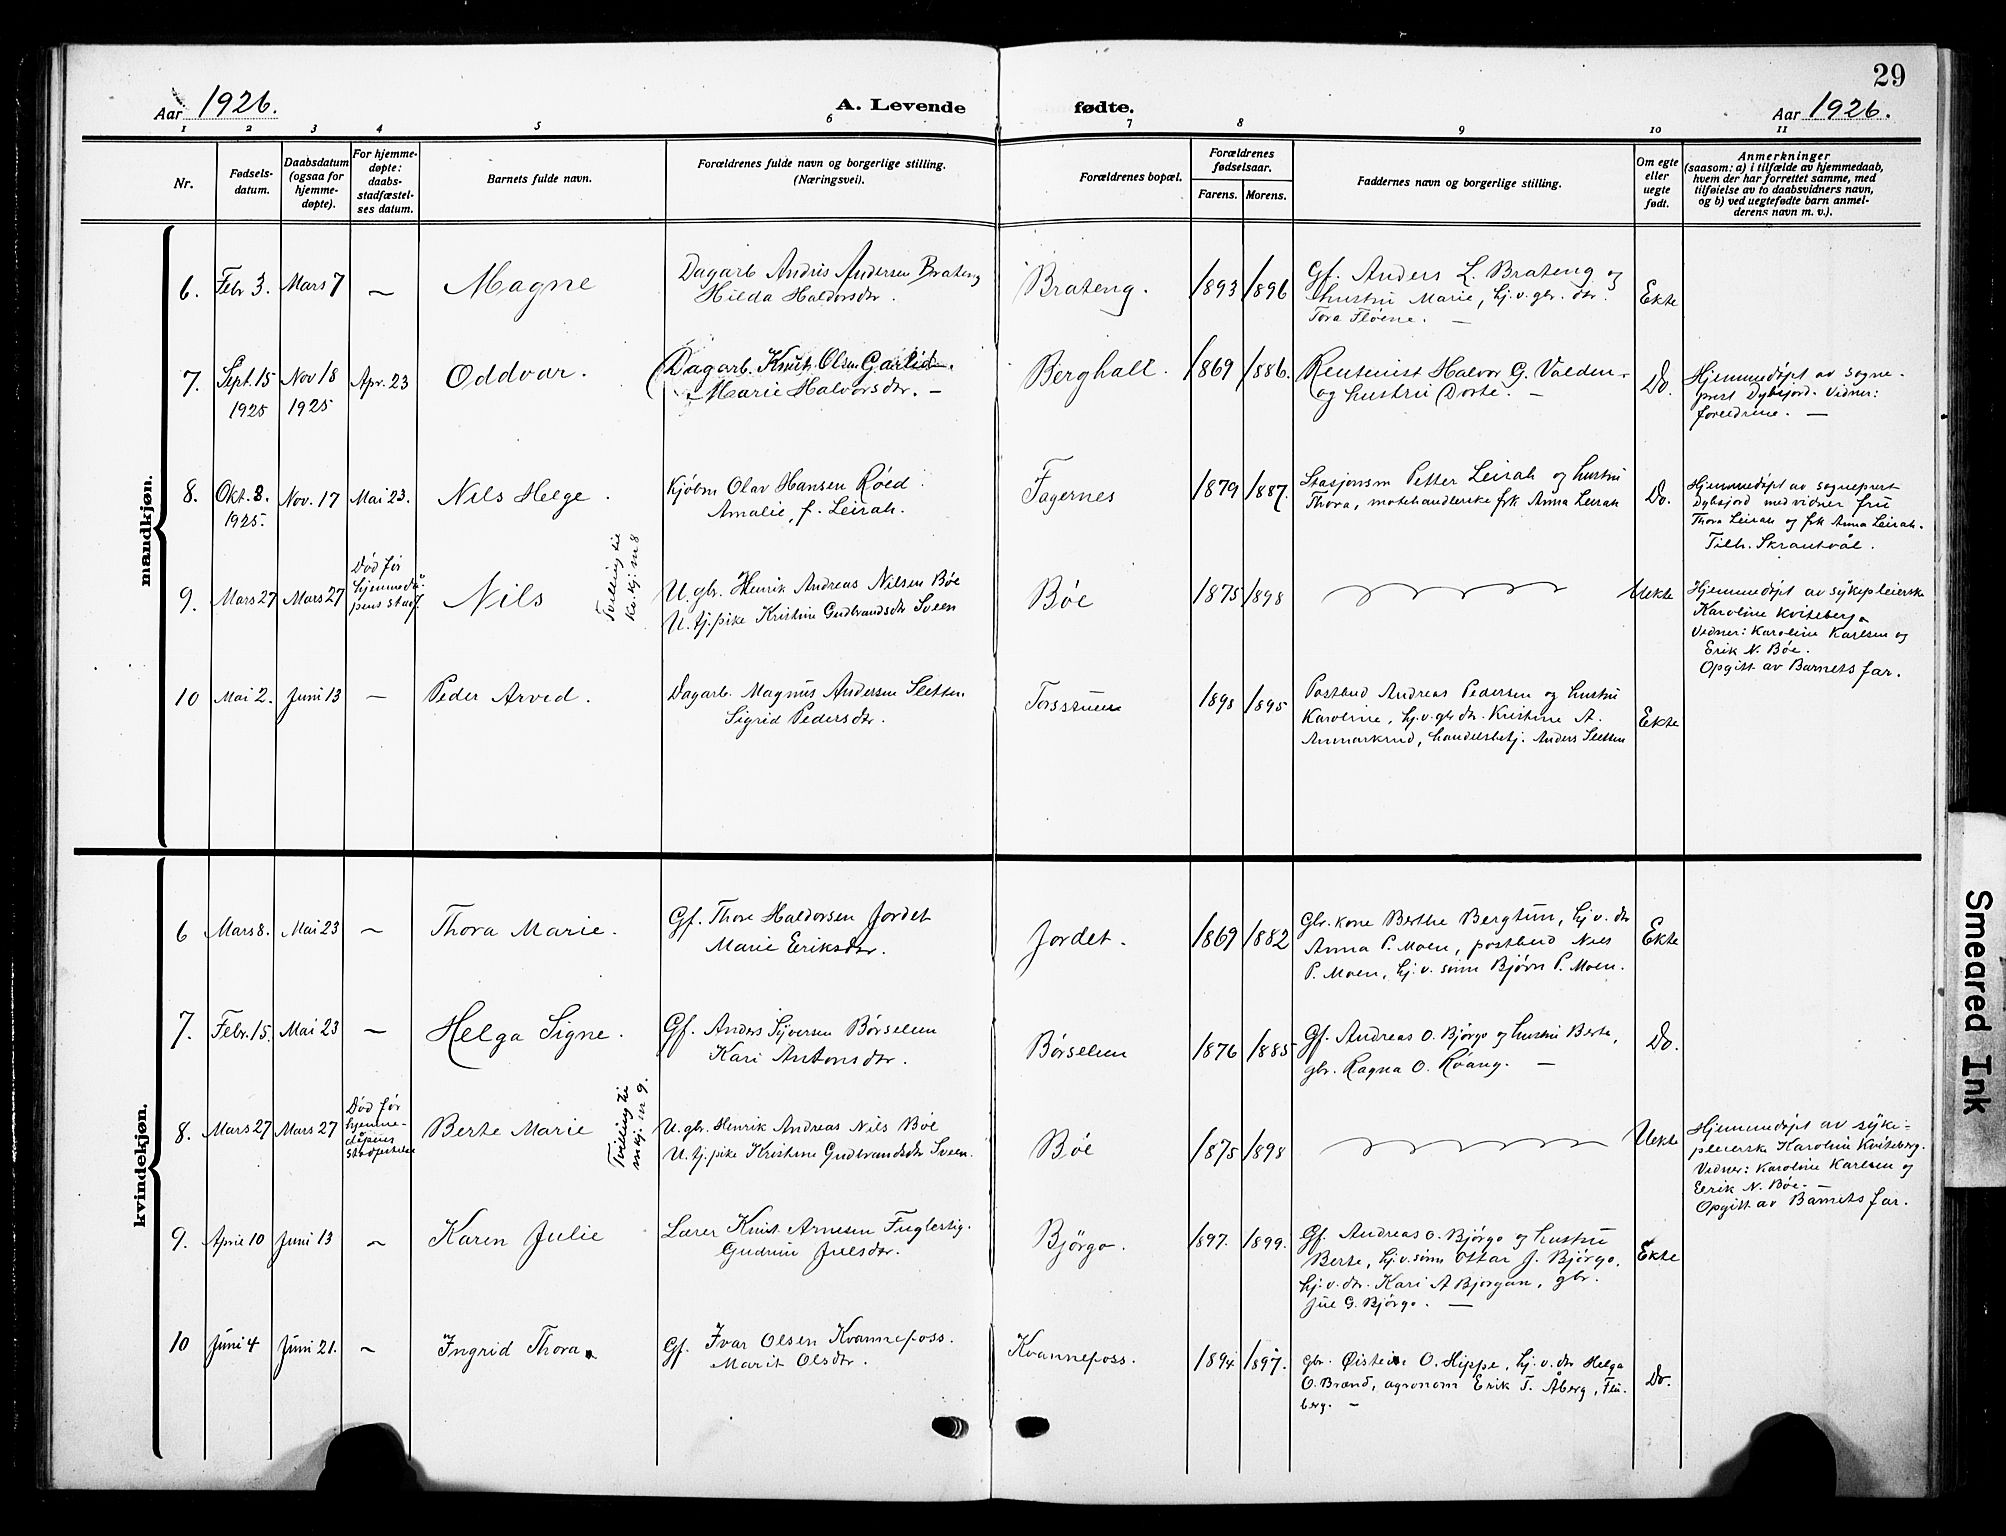 29
Aar 1926.
A. Levende fødte.
Aar 1926.
1 2 3 4 5 6 7 8 9 10 11
Nr.
Fødsels-
datum.
Daabsdatum
(ogsaa for
hjemme-
døpte).
For hjemme-
døpte:
daabs-
stadfæstel-
ses datum.
Barnets fulde navn.
Forældrenes fulde navn og borgerlige stilling.
(Næringsvei).
Forældrenes bopæl.
Forældrenes
fødselsaar.
Farens. Morens.
Faddernes navn og borgerlige stilling.
Om egte
eller
uegte
født.
Anmerkninger
(saasom: a) i tilfælde av hjemmedaab,
hvem der har forrettet samme, med
tilføielse av to daabsvidners navn,
og b) ved uegtefødte barn anmel-
derens navn m. v.).
mandkjøn.
6. Febr 3. Mars 7 — Magne
Dagarb Andris Andersen Brateng
Hilda Haldorsdtr.
Brateng. 1893 1896
Gf. Anders L. Brateng og
hustru Marie, hj.v.gbr. dtr.
Tora Fløene. —
Ekte
7. Sept. 15 1925 Nov 18 1925 Apr. 23 Oddvar.
Dagarb. Knut Olsen Garlid.
Marie Halvorsdtr. —
Berghall 1869 1886.
Rentenist Halvor G. Valden
og hustru Dorte. —
Do.
Hjemmedøpt av sogne-
prest Dybsjord. Vidner:
foreldrene. —
8. Okt. 3. 1925. Nov. 17 Mai 23. Nils Helge.
Kjøbm Olav Hansen Røed.
Amalie, f. Leirah.
Fagernes 1879 1887.
Stasjonsm Petter Leirah og hustru
Thora, motehandlerske frk Anna Leirah
Do.
Hjemmedøpt av sogneprest
Dybsjord med vidner fru
Thora Leirah og frk Anna Leirah.
Tilh. Skrautvål.
9. Mars 27 Mars 27
Død før
hjemmedå-
pens stadf.
Nils
Tvilling til
kv.kj. nr 8
U. gbr. Henrik Andreas Nilsen Bøe
U. tj.pike Kristine Gudbrandsdtr Sveen
Bøe 1875 1898 Uekte
Hjemmedøpt av sykepleierske
Karoline Kviteberg
Vidner: Karoline Karlsen og
Erik N. Bøe.
Opgitt av Barnets far.
10 Mai 2. Juni 13 — Peder Arved.
Dagarb. Magnus Andersen Sletten
Sigrid Pedersdtr.
Torsstuen 1898 1895
Postbud Andreas Pedersen og hustru
Karoline, hj.v.gbr dtr. Kristine A.
Aurmarkrud, handelsbetj. Anders Sletten
Ekte
kvindekjøn.
6 Mars 8. Mai 23 — Thora Marie.
Gf. Thore Haldorsen Jordet
Marie Eriksdtr.
Jordet. 1869 1882
Gbr. kone Berthe Bergtun, hj.v.dtr
Anna P. Moen, postbud Nils
P. Moen, hj.v. sønn Bjørn P. Moen.
Ekte
7. Febr. 15. Mai 23 — Helga Signe.
Gf. Anders Syversen Børselien
Kari Antonsdtr.
Børselien 1876 1885
Gf. Andreas O. Bjørgo og hustru Berte,
gbr. Ragna O. Røang. —
Do.
8. Mars 27 Mars 27
Død før
hjemme-
dåpens
stadfestelse
Berte Marie
Tvilling til
mkj. nr 9.
U. gbr. Henrik Andreas Nils Bøe
U. tj.pike Kristine Gudbrandsdtr Sveen.
Bøe 1875 1898 Uekte
Hjemmedøpt av syke-
pleierske Karoline Kviteberg.
Vidner: Karoline Karlsen og
Erik N. Bøe. —
Opgitt av Barnets far.
9. April 10 Juni 13 — Karen Julie
Lærer Knut Arnesen Fuglestig.
Gudrun Julsdtr.
Bjørgo. 1897. 1899.
Gf. Andreas O. Bjørgo og hustru
Berte, hj.v.sønn Ottar J. Bjørgo,
hj.v.dtr. Kari A Bjørgan, gbr.
Jul G. Bjørgo. —
Ekte
10 Juni 4 Juni 21. — Ingrid Thora.
Gf. Ivar Olsen Kvannefoss.
Marit Olsdtr.
Kvannefoss. 1894 1897.
gbr. Øistein O. Hippe, hj.v.dtr Helga
O. Brand, agronom Erik T. Åberg, Flu-
berg. —
Do.
Smeared Ink